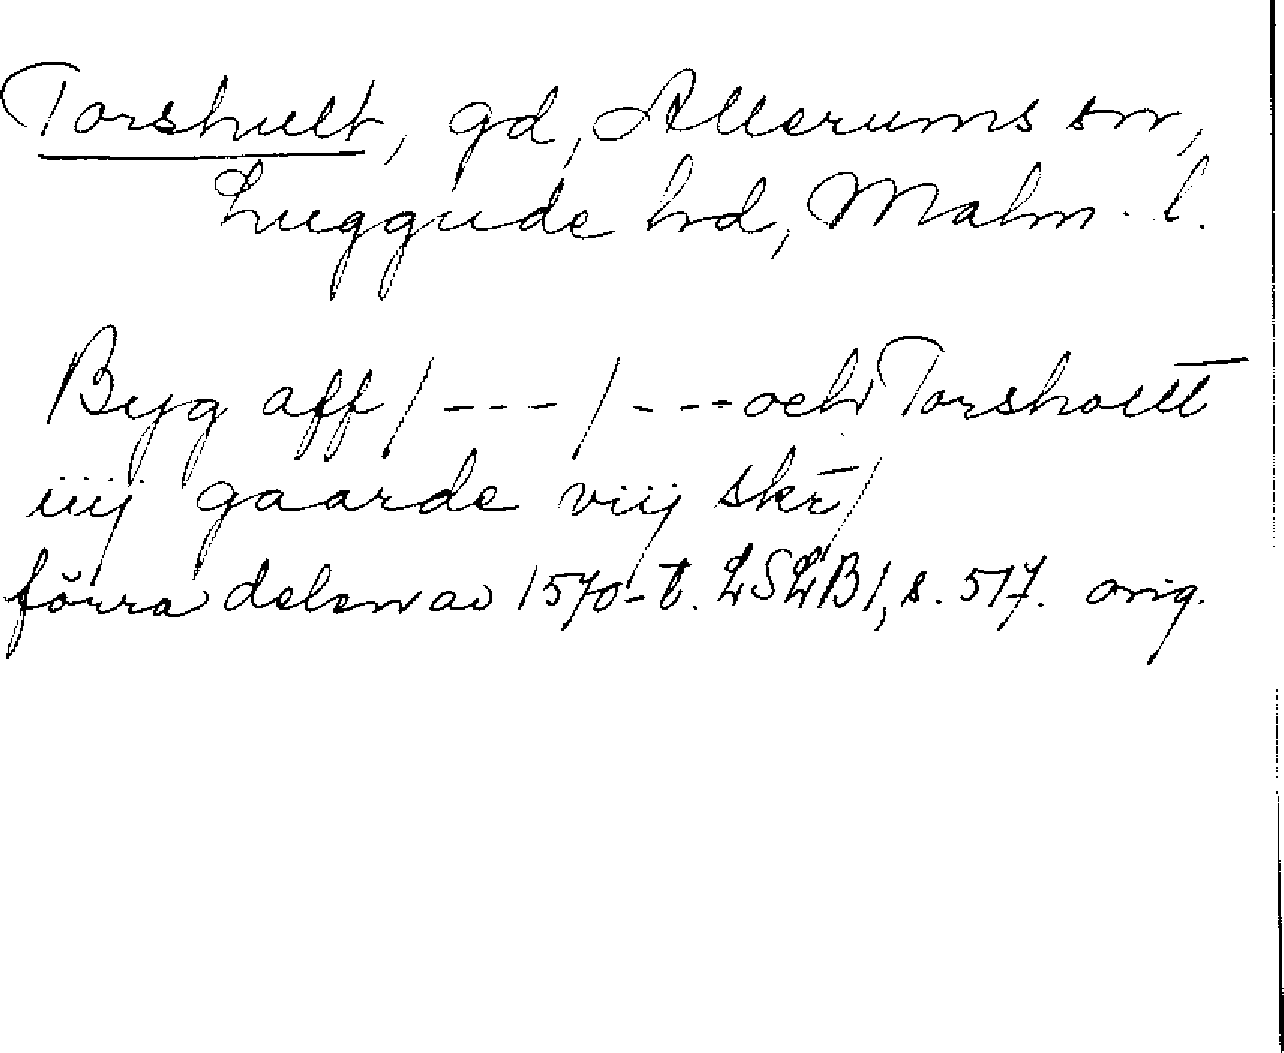 Torshult, gd, Allerums sn,
Luggude hd, Malm. l.
Byg aff / - - - / - - - och Torshoult̅
iiij gaarde viij skr̅ /
förra delen av 1570-t. LSLB 1, s. 517. orig.